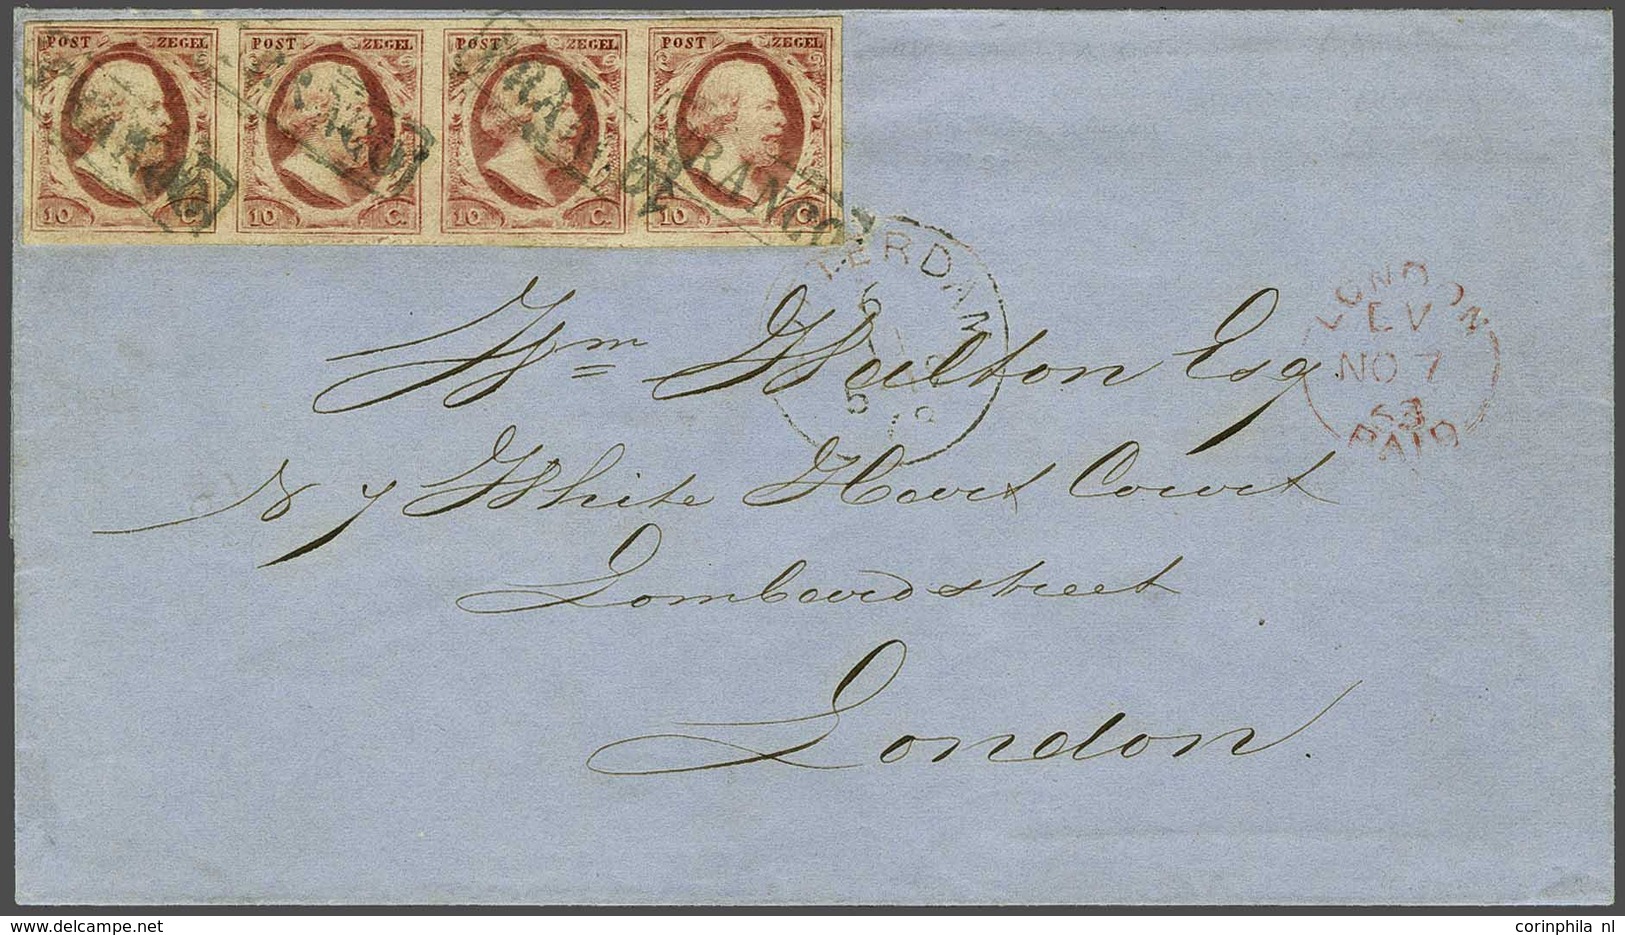 POST ZEGEL POST ZEGEL POST ZEGEL POST ZEGEL
FRANCO
10 C. 10 C. 10 C. 10 C.
TERDAM
6
5
LONDON
EV
NO 7
63
PAID
Wm Walton Esq
N 7 White Hart Court
Lombard street
London.
www.delcampe.net
corinphila nl